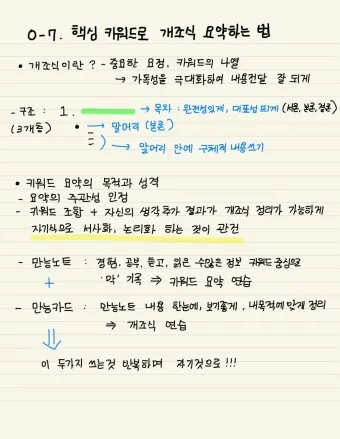 0-7. 핵심 키워드로 개조식 요약하는 법
• 개조식이란? - 중요한 요점, 키워드의 나열
→ 가독성을 극대화하여 내용전달 잘 되게
- 구조 : 1. → 목차 : 완전성있게, 대표성 띄게 (서론, 본론, 결론)
(3개층) • → 말머리 (본론)
→ 말머리 안에 구체적 내용쓰기
• 키워드 요약의 목적과 성격
- 요약의 주관성 인정
- 키워드 조합 + 자신의 생각 추가 결과가 개조식 정리가 가능하게
자기식으로 서사화, 논리화 하는 것이 관건
- 만능노트 : 경험, 공부, 듣고, 읽은 수많은 정보 키워드 중심으로
+ '막' 기록 ⇒ 키워드 요약 연습
- 만능카드 : 만능노트 내용 한눈에, 보기좋게, 내 목적에 맞게 정리
⇒ 개조식 연습
이 두가지 쓰는것 반복하며 자기것으로!!!